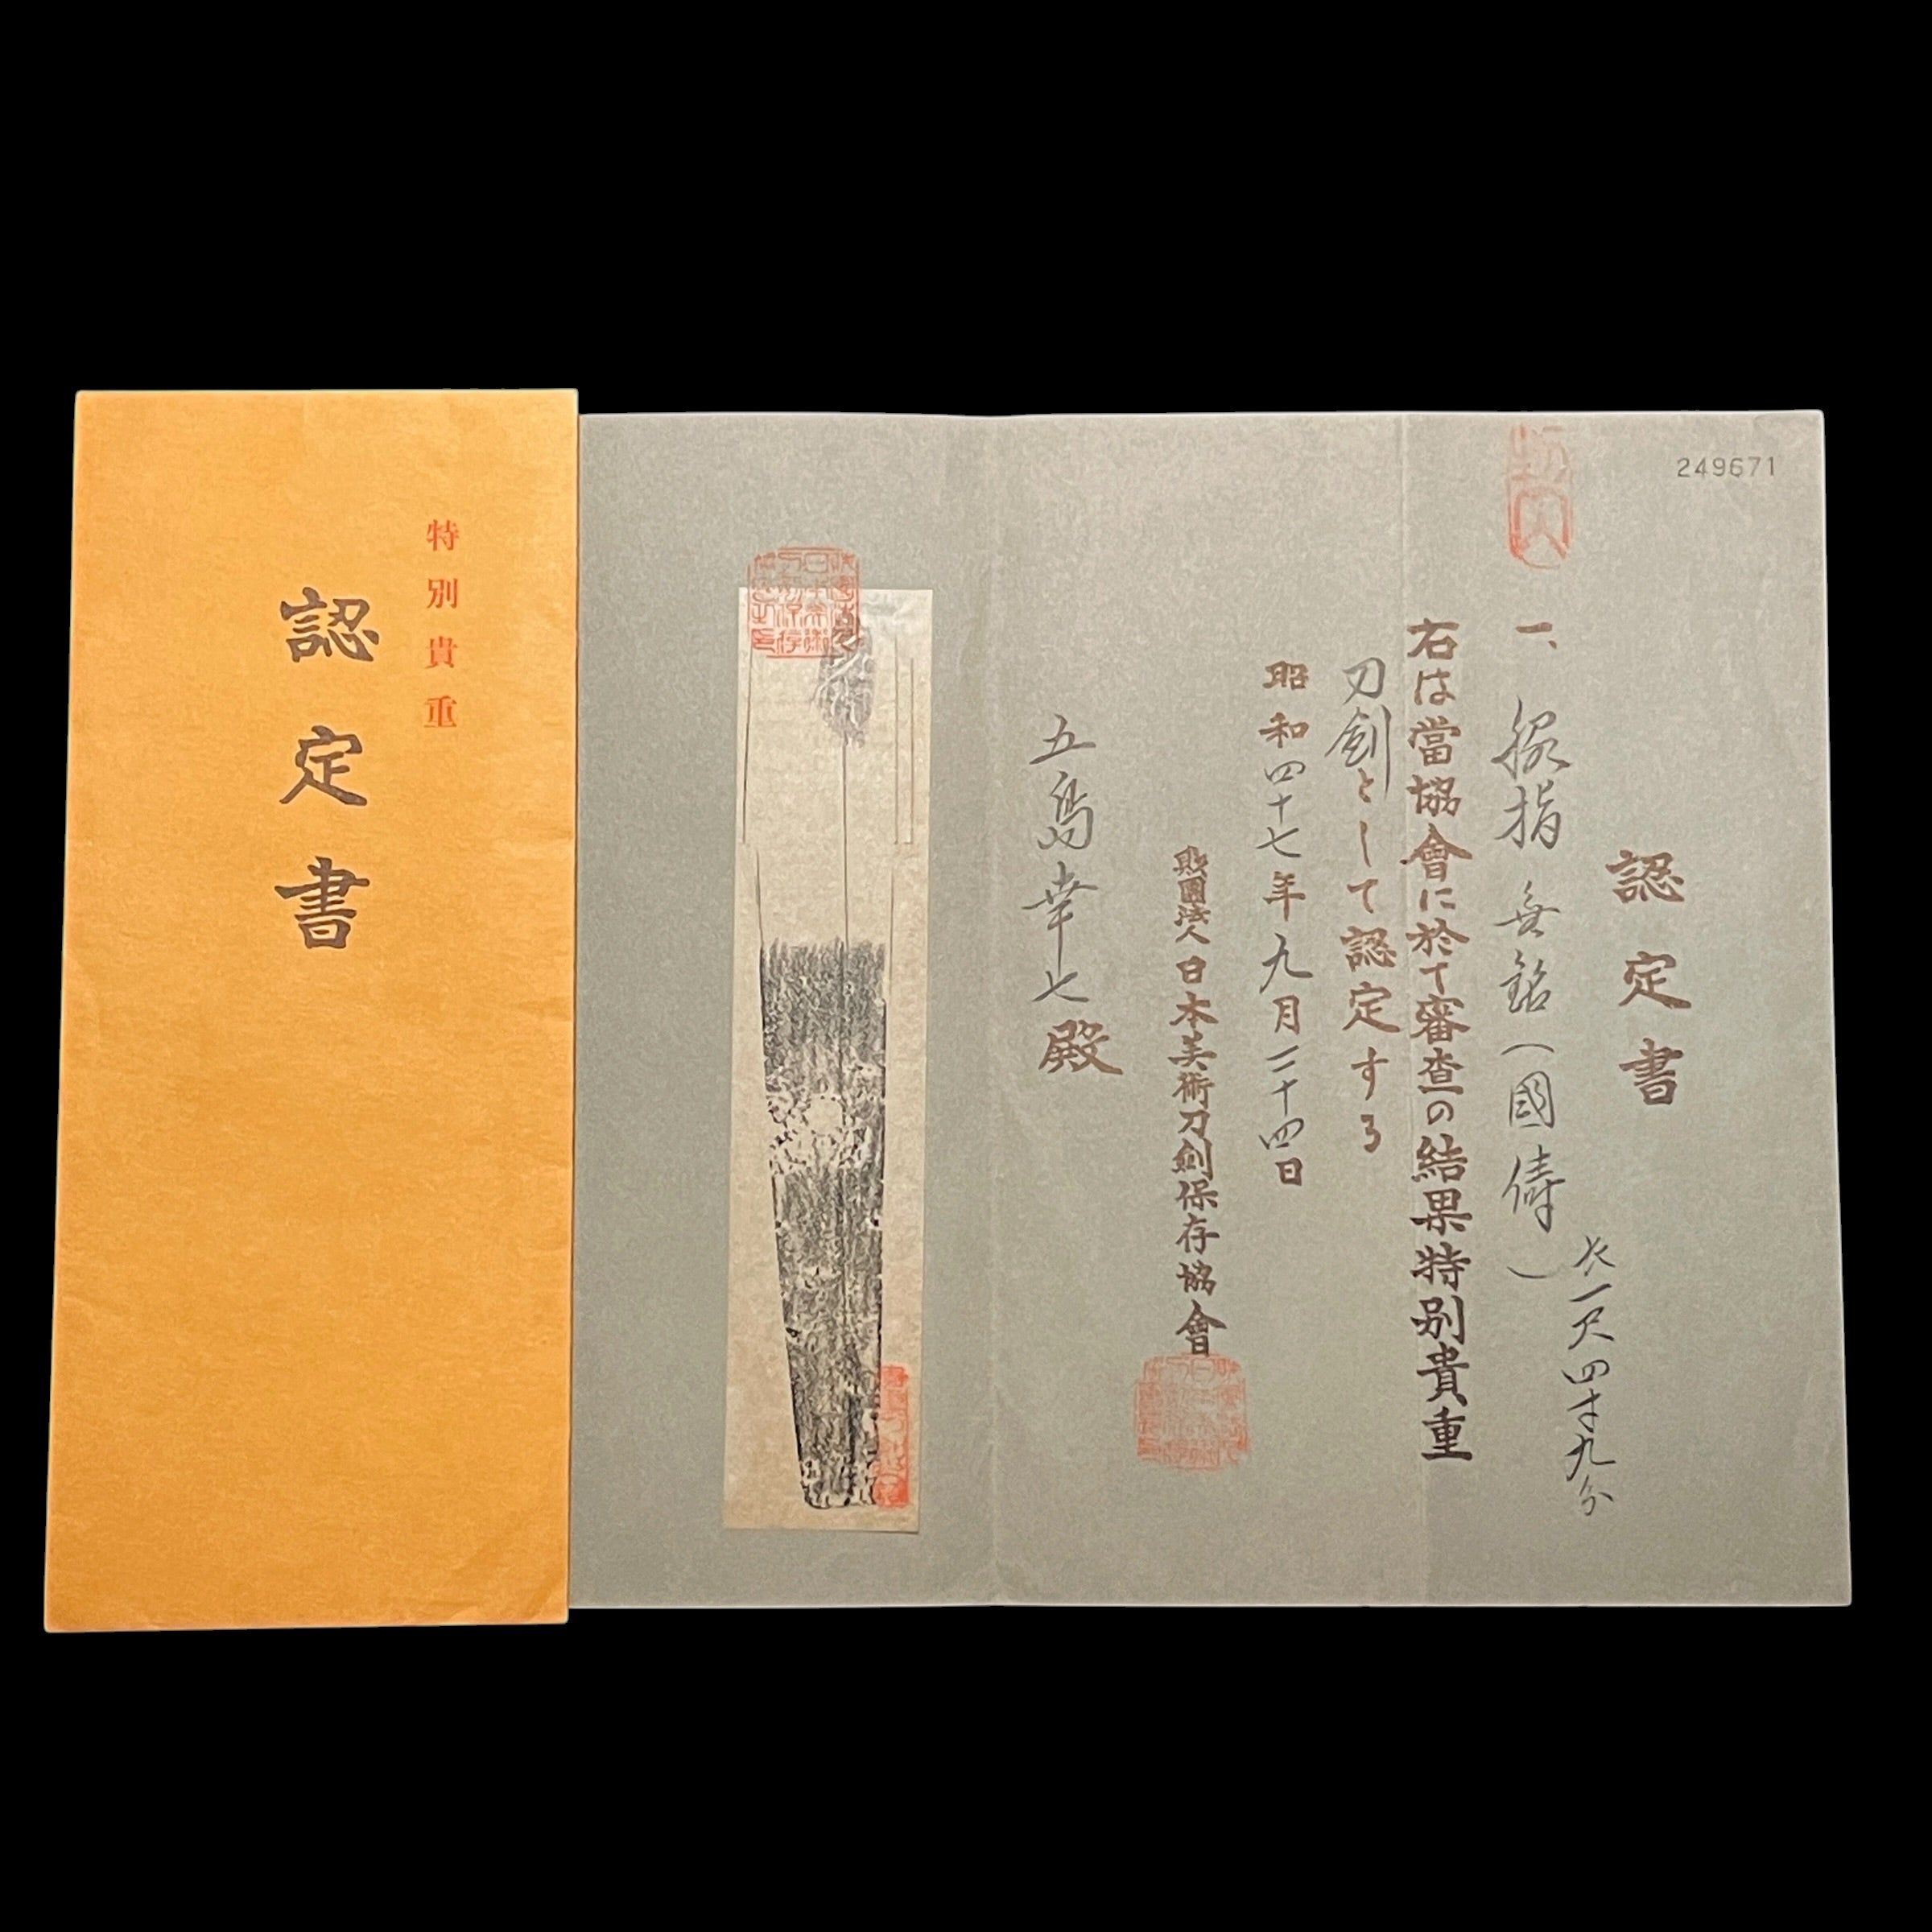 特別貴重
認定書
249671
認定書
一、脇指 無銘(國儔)
長一尺四寸九分
右は當協會に於て審査の結果特別貴重
刀劍として認定する
昭和四十七年九月二十四日
財團法人日本美術刀劍保存協會
五島幸七殿